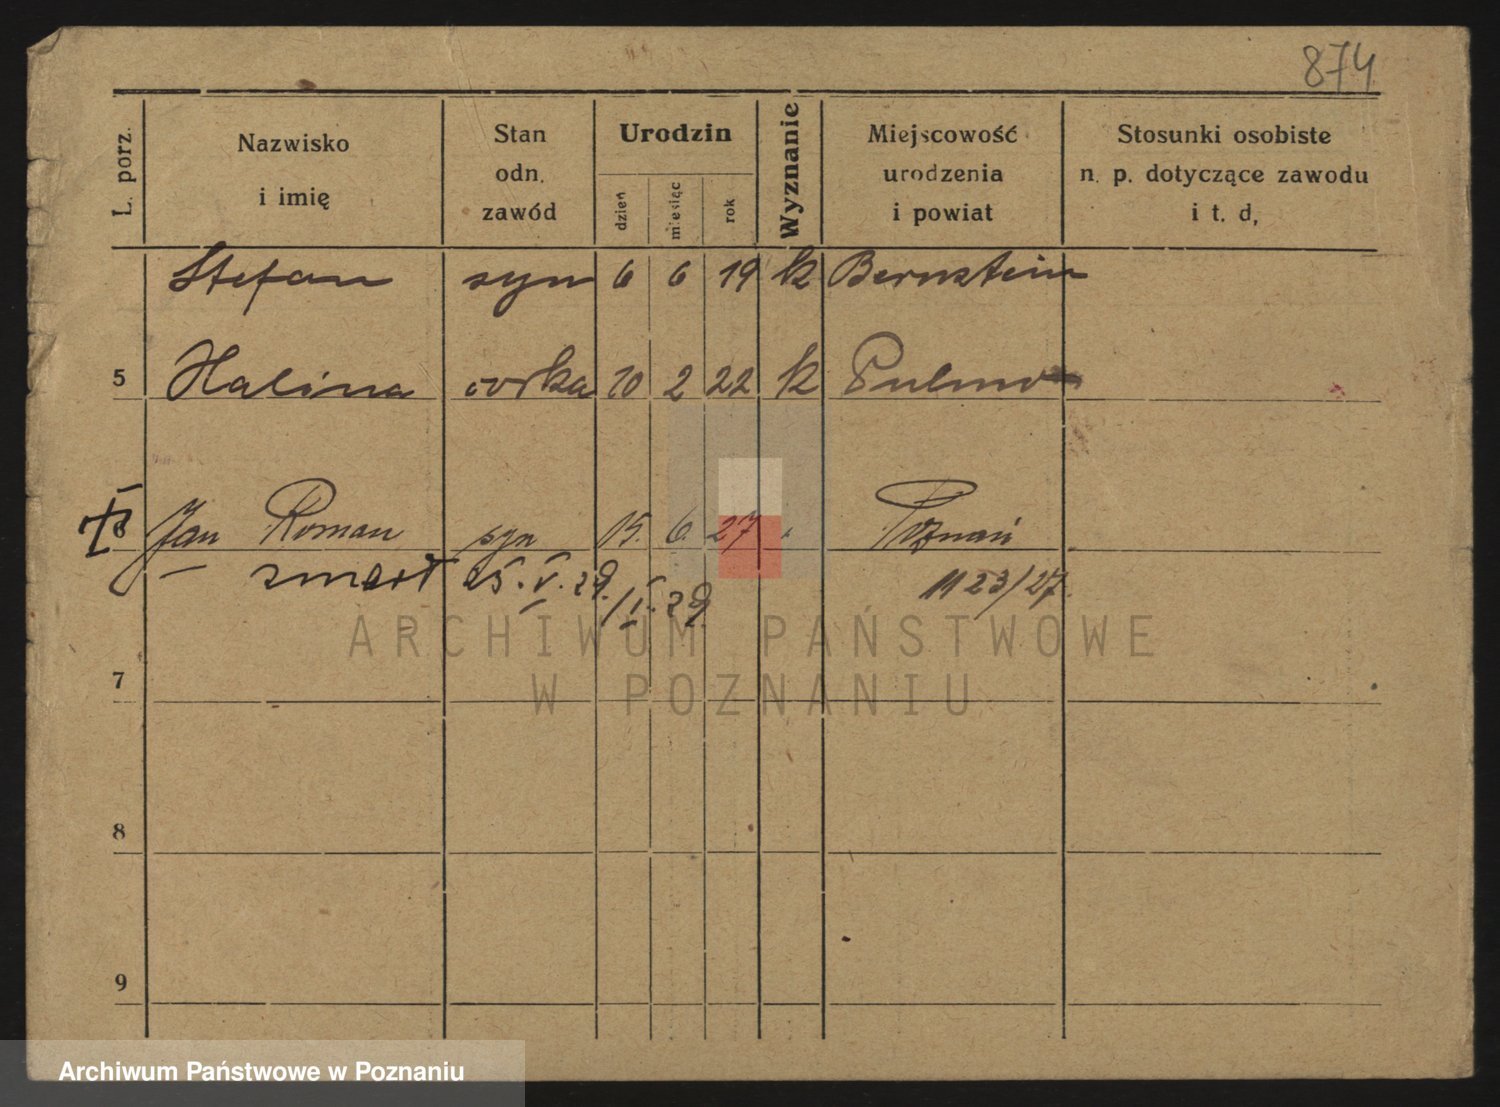 874
L. porz.
Nazwisko
i imię
Stan
odn.
zawód
Urodzin
dzień
miesiąc
rok
Wyznanie
Miejscowość
urodzenia
i powiat
Stosunki osobiste
n. p. dotyczące zawodu
i t. d,
Stefan syn 6 6 19 k Bernstein
5 Halina córka 10 2 22 k
6 Jan Roman syn 15. 6. 27 Poznań
zmarł 25. V. 29. 1123/27.
/V. 29.
ARCHIWUM PAŃSTWOWE
W POZNANIU
7
8
9
Archiwum Państwowe w Poznaniu